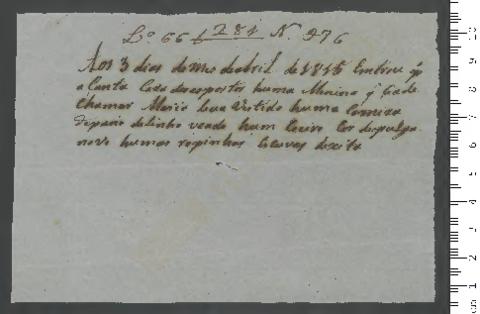 Lº 66 f 284 N. 976
Aos 3 dias do mes de abril de 1845 Entrou p
a Santa Casa dos espostos huma Menina q se ade
Chamar Maria leva Vestido huma Camiza
de pano de linho hum Coeiro Cor de pulga
novo humas roupinhas de xita